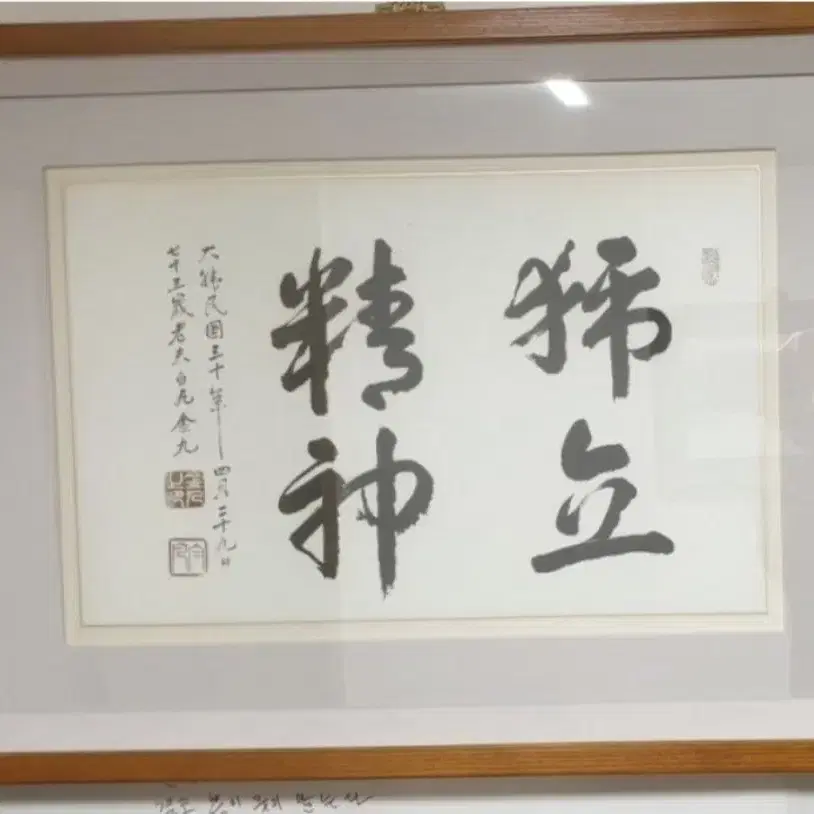 獨立
精神
大韓民國三十年四月二十九日
七十三歲老夫白凡金九